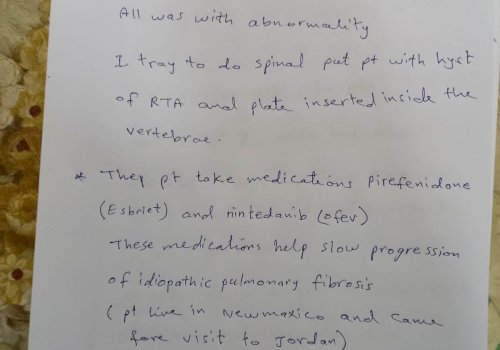 All was with abnormality
I tray to do spinal put pt with hyst
of RTA and plate inserted inside the
vertebrae.
* They pt take medications Pirefenidone
(Esbriet) and nintedanib (ofev)
These medications help slow progression
of idiopathic pulmonary fibrosis
( pt live in Newmaxico and came
fore visit to Jordan)